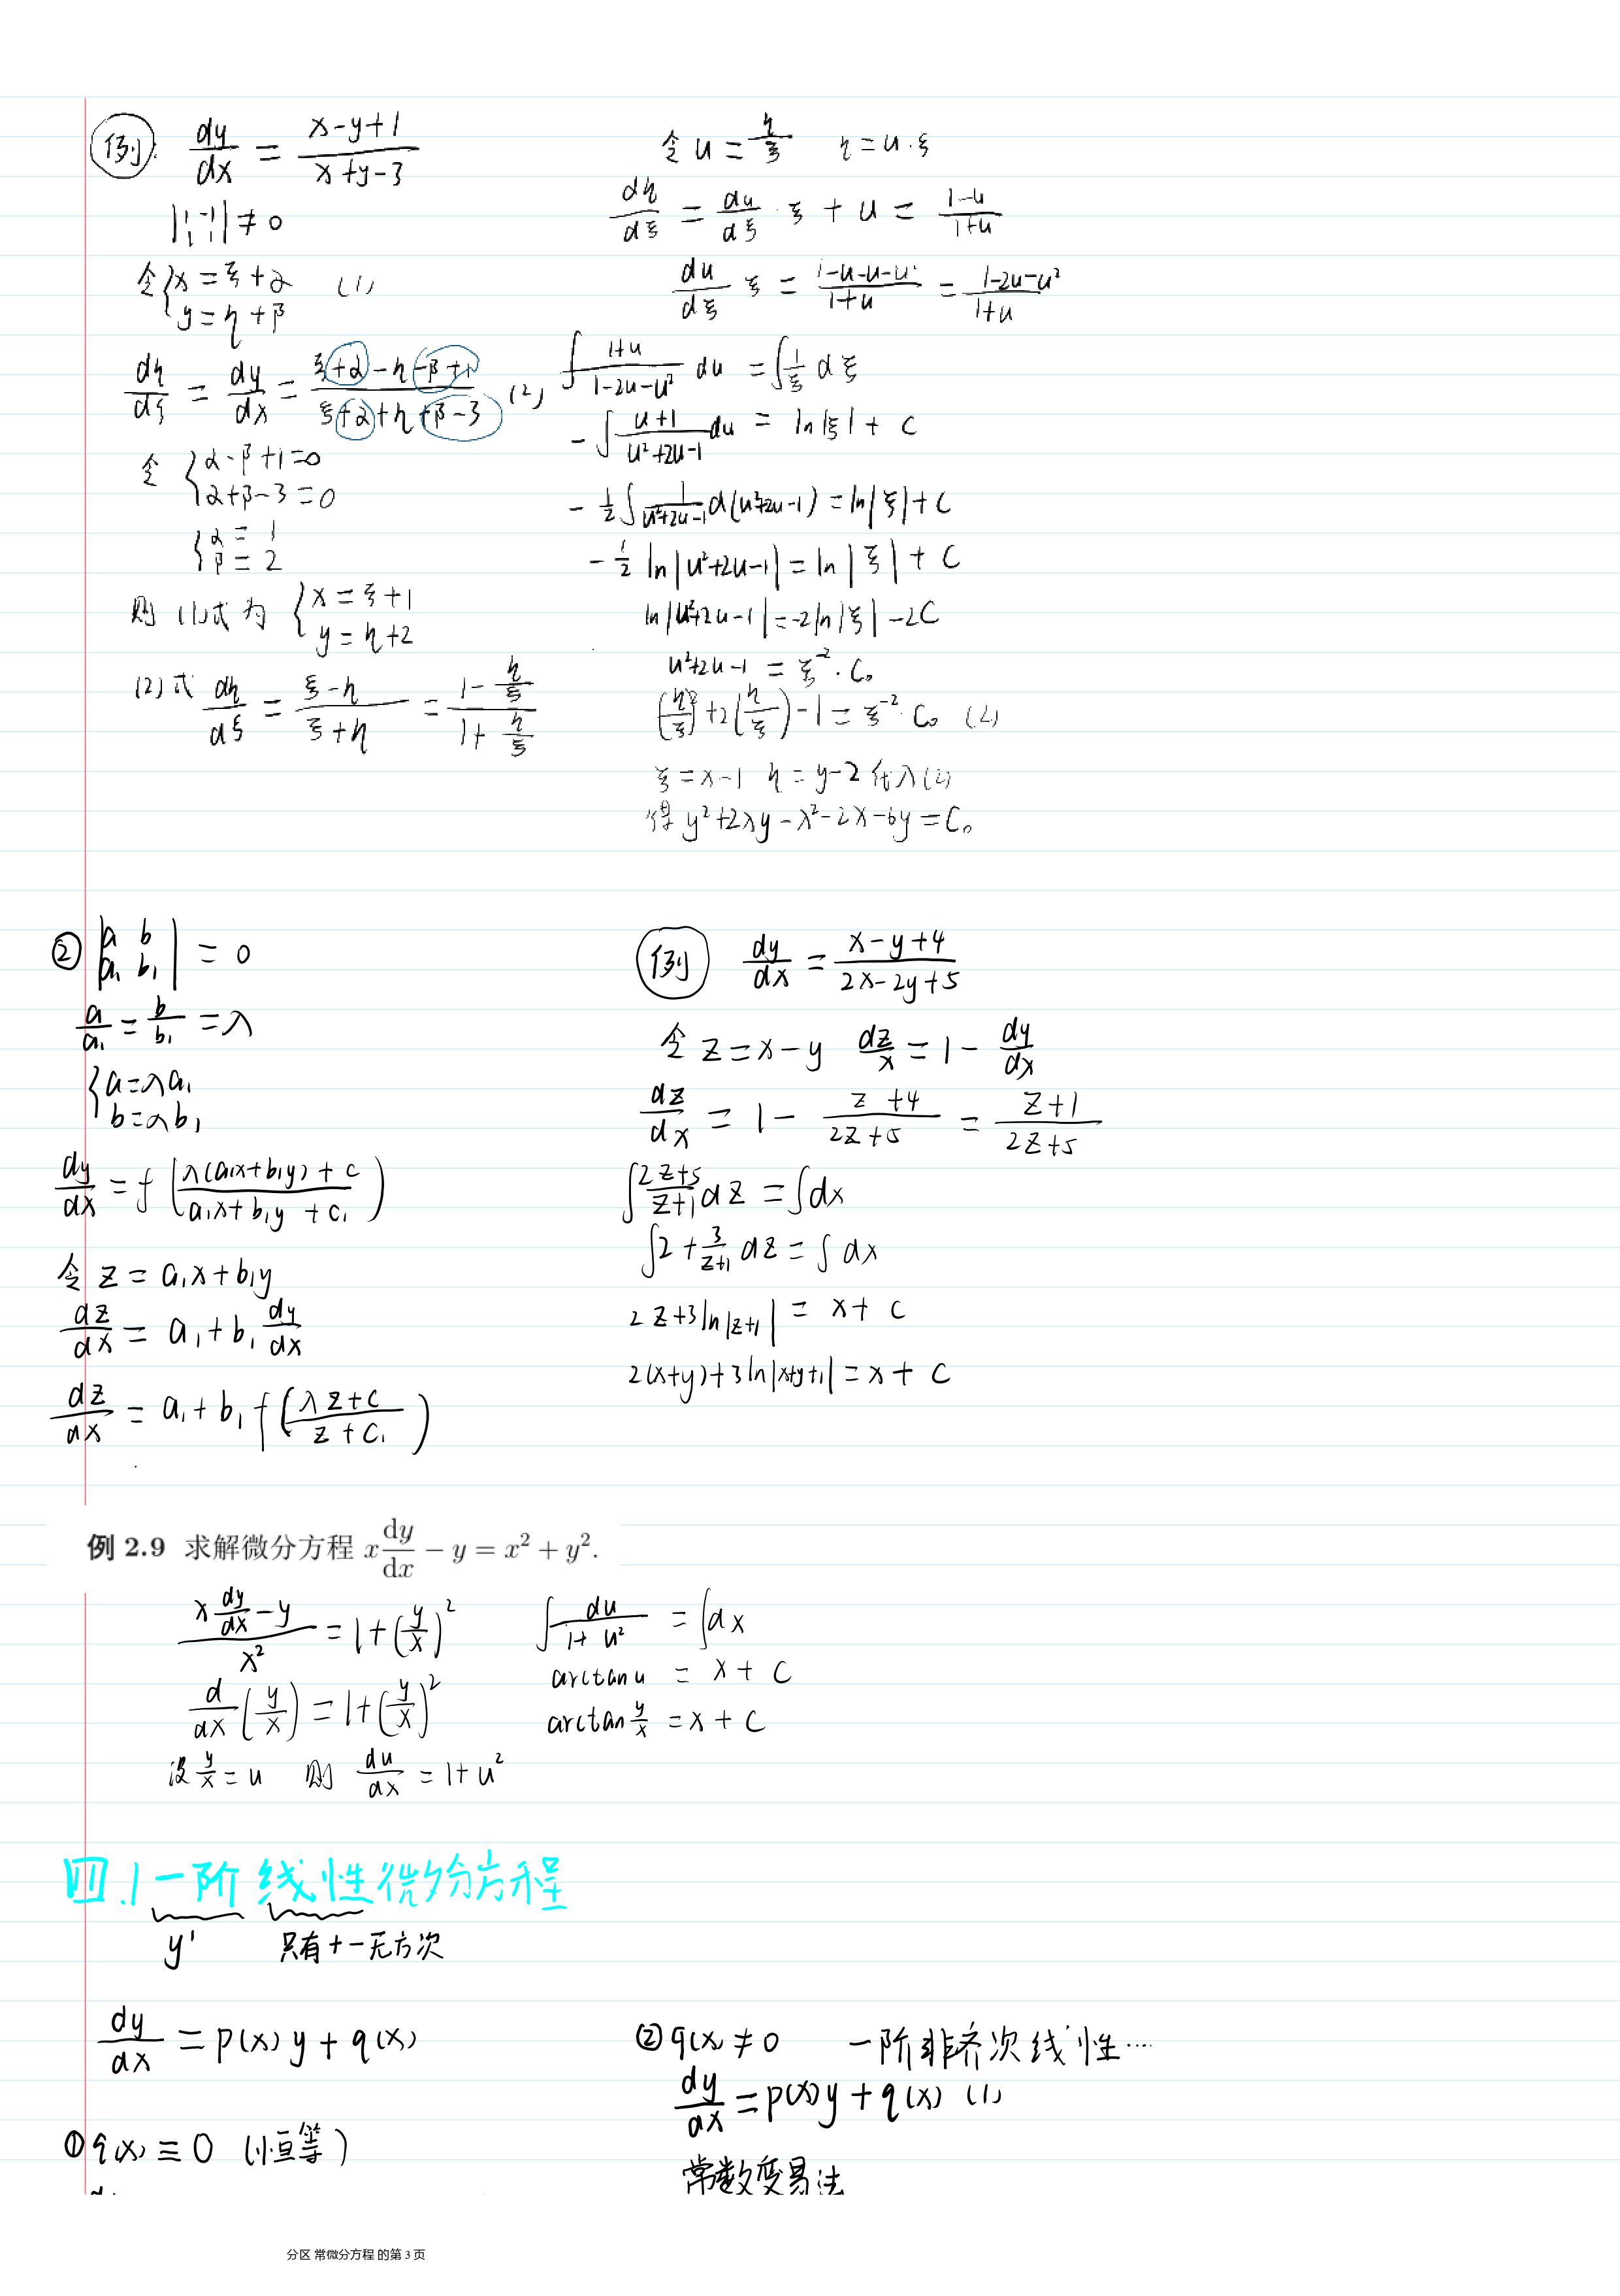 例: dy/dx = (x-y+1)/(x+y-3)
|1 -1; 1 1| ≠ 0
令 {x = ξ+α (1)
y = η+β
dη/dξ = dy/dx = (ξ+α-η-β+1)/(ξ+α+η+β-3) (2)
令 {α-β+1=0
α+β-3=0
{α = 1
β = 2
则 (1)式为 {x = ξ+1
y = η+2
(2)式 dη/dξ = (ξ-η)/(ξ+η) = (1-η/ξ)/(1+η/ξ)
令 u = η/ξ η = u·ξ
dη/dξ = du/dξ · ξ + u = (1-u)/(1+u)
du/dξ ξ = (1-u-u-u²)/(1+u) = (1-2u-u²)/(1+u)
∫ (1+u)/(1-2u-u²) du = ∫ 1/ξ dξ
-∫ (u+1)/(u²+2u-1) du = ln|ξ| + C
-1/2 ∫ 1/(u²+2u-1) d(u²+2u-1) = ln|ξ| + C
-1/2 ln|u²+2u-1| = ln|ξ| + C
ln|u²+2u-1| = -2ln|ξ| -2C
u²+2u-1 = ξ⁻²·C₀
(η/ξ)²+2(η/ξ)-1 = ξ⁻²·C₀ (2)
ξ = x-1 η = y-2 代入(2)
得 y²+2xy-x²-2x-6y = C₀
② |a b; a₁ b₁| = 0
a/a₁ = b/b₁ = λ
{a = λa₁
b = λb₁
dy/dx = f((λ(a₁x+b₁y)+c)/(a₁x+b₁y+c₁))
令 z = a₁x+b₁y
dz/dx = a₁+b₁ dy/dx
dz/dx = a₁+b₁ f((λz+c)/(z+c₁))
例 dy/dx = (x-y+4)/(2x-2y+5)
令 z = x-y dz/x = 1 - dy/dx
dz/dx = 1 - (z+4)/(2z+5) = (z+1)/(2z+5)
∫ (2z+5)/(z+1) dz = ∫dx
∫ 2 + 3/(z+1) dz = ∫ dx
2z+3ln|z+1| = x+c
2(x+y)+3ln|x+y+1| = x+c
例 2.9 求解微分方程 x dy/dx - y = x² + y².
(x dy/dx - y)/x² = 1+(y/x)²
d/dx (y/x) = 1+(y/x)²
设 y/x = u 则 du/dx = 1+u²
∫ du/(1+u²) = ∫dx
arctan u = x + c
arctan y/x = x + c
四.1一阶线性微分方程
y' 只有+-无方次
dy/dx = p(x)y + q(x)
① q(x) ≡ 0 (恒等)
② q(x) ≠ 0 一阶非齐次线性…
dy/dx = p(x)y + q(x) (1)
常数变易法
分区 常微分方程 的第 3 页